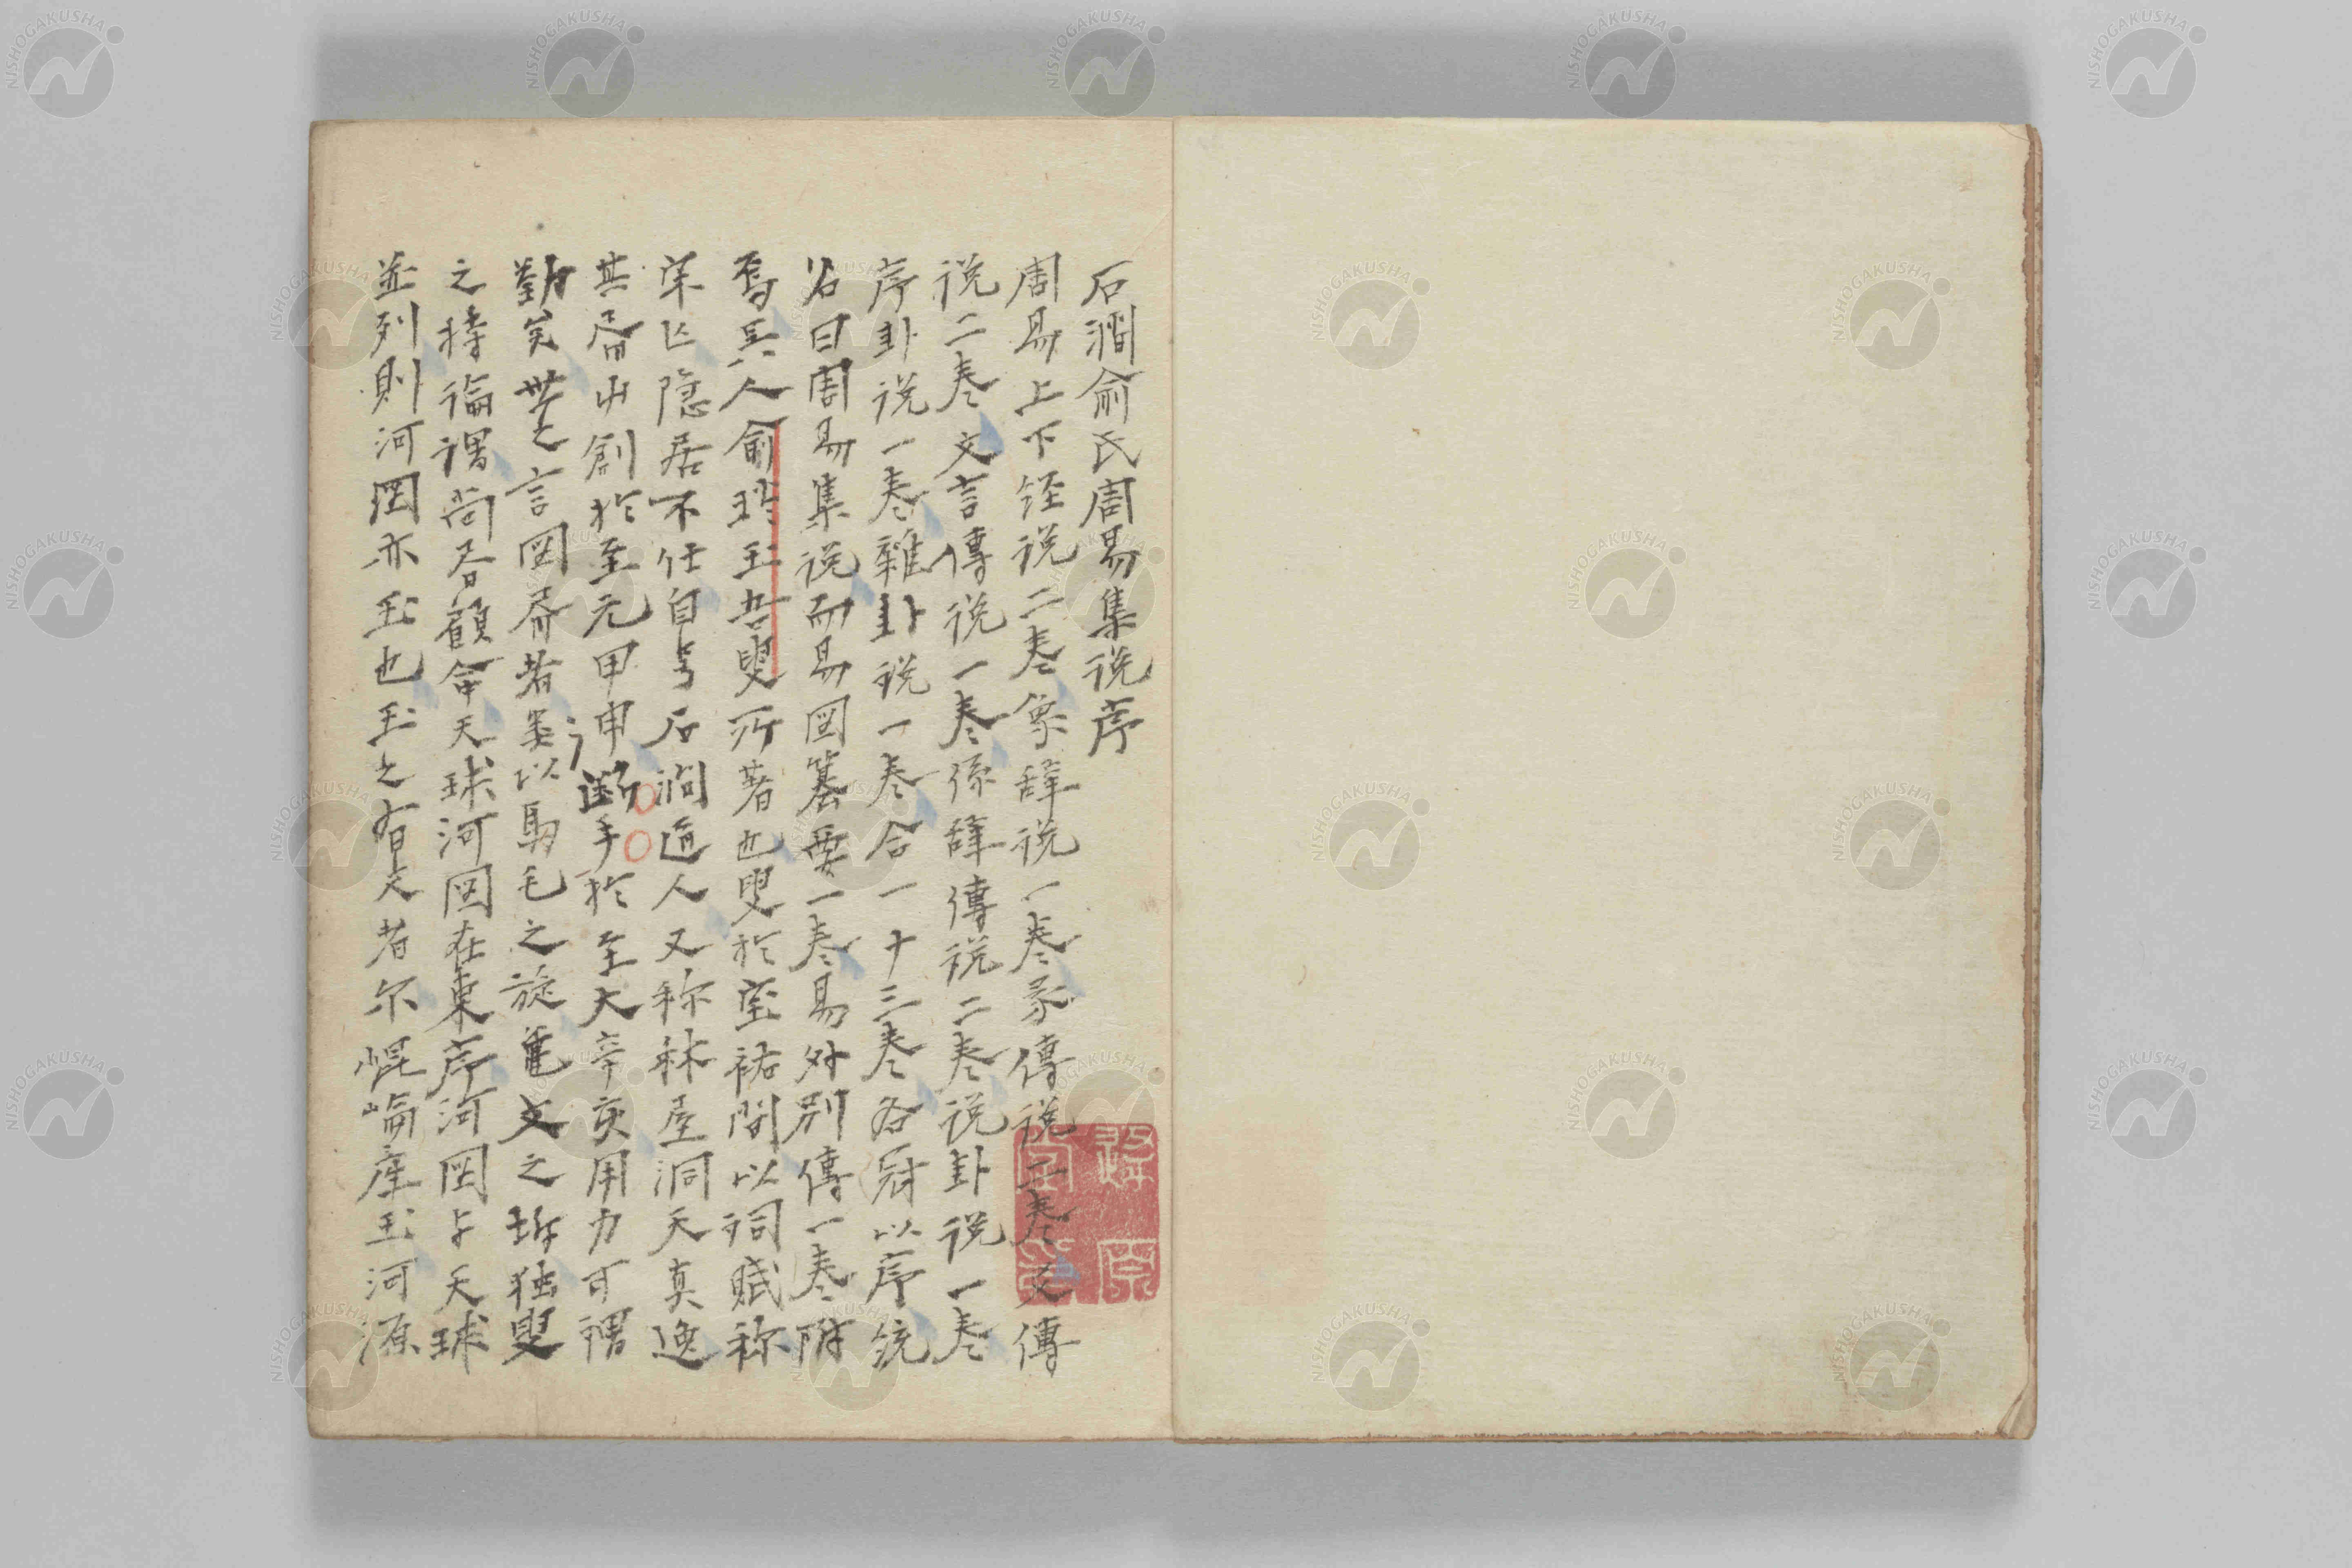 石澗俞氏周易集説序
周易上下経説二巻象辞説一巻彖傳説二巻爻傳
説二巻文言傳説一巻係辞傳説二巻説卦説一巻
序卦説一巻雜卦説一巻合一十三巻各冠以序統
名曰周易集説而易図纂要一巻易外別傳一巻附
焉呉人俞琰玉吾叟所著也叟於宝祐間以詞賦称
宋亡隠居不仕自号石澗道人又称林屋洞天真逸
其書也創於至元甲申断手於至大辛亥用力可謂
勤矣世之言図書者類以馬毛之旋亀文之坼独叟
之持論謂尚書顧命天球河図在東序河図与天球
並列則河図亦玉也玉之有文者尓崐崘産玉河源
NISHOGAKUSHA